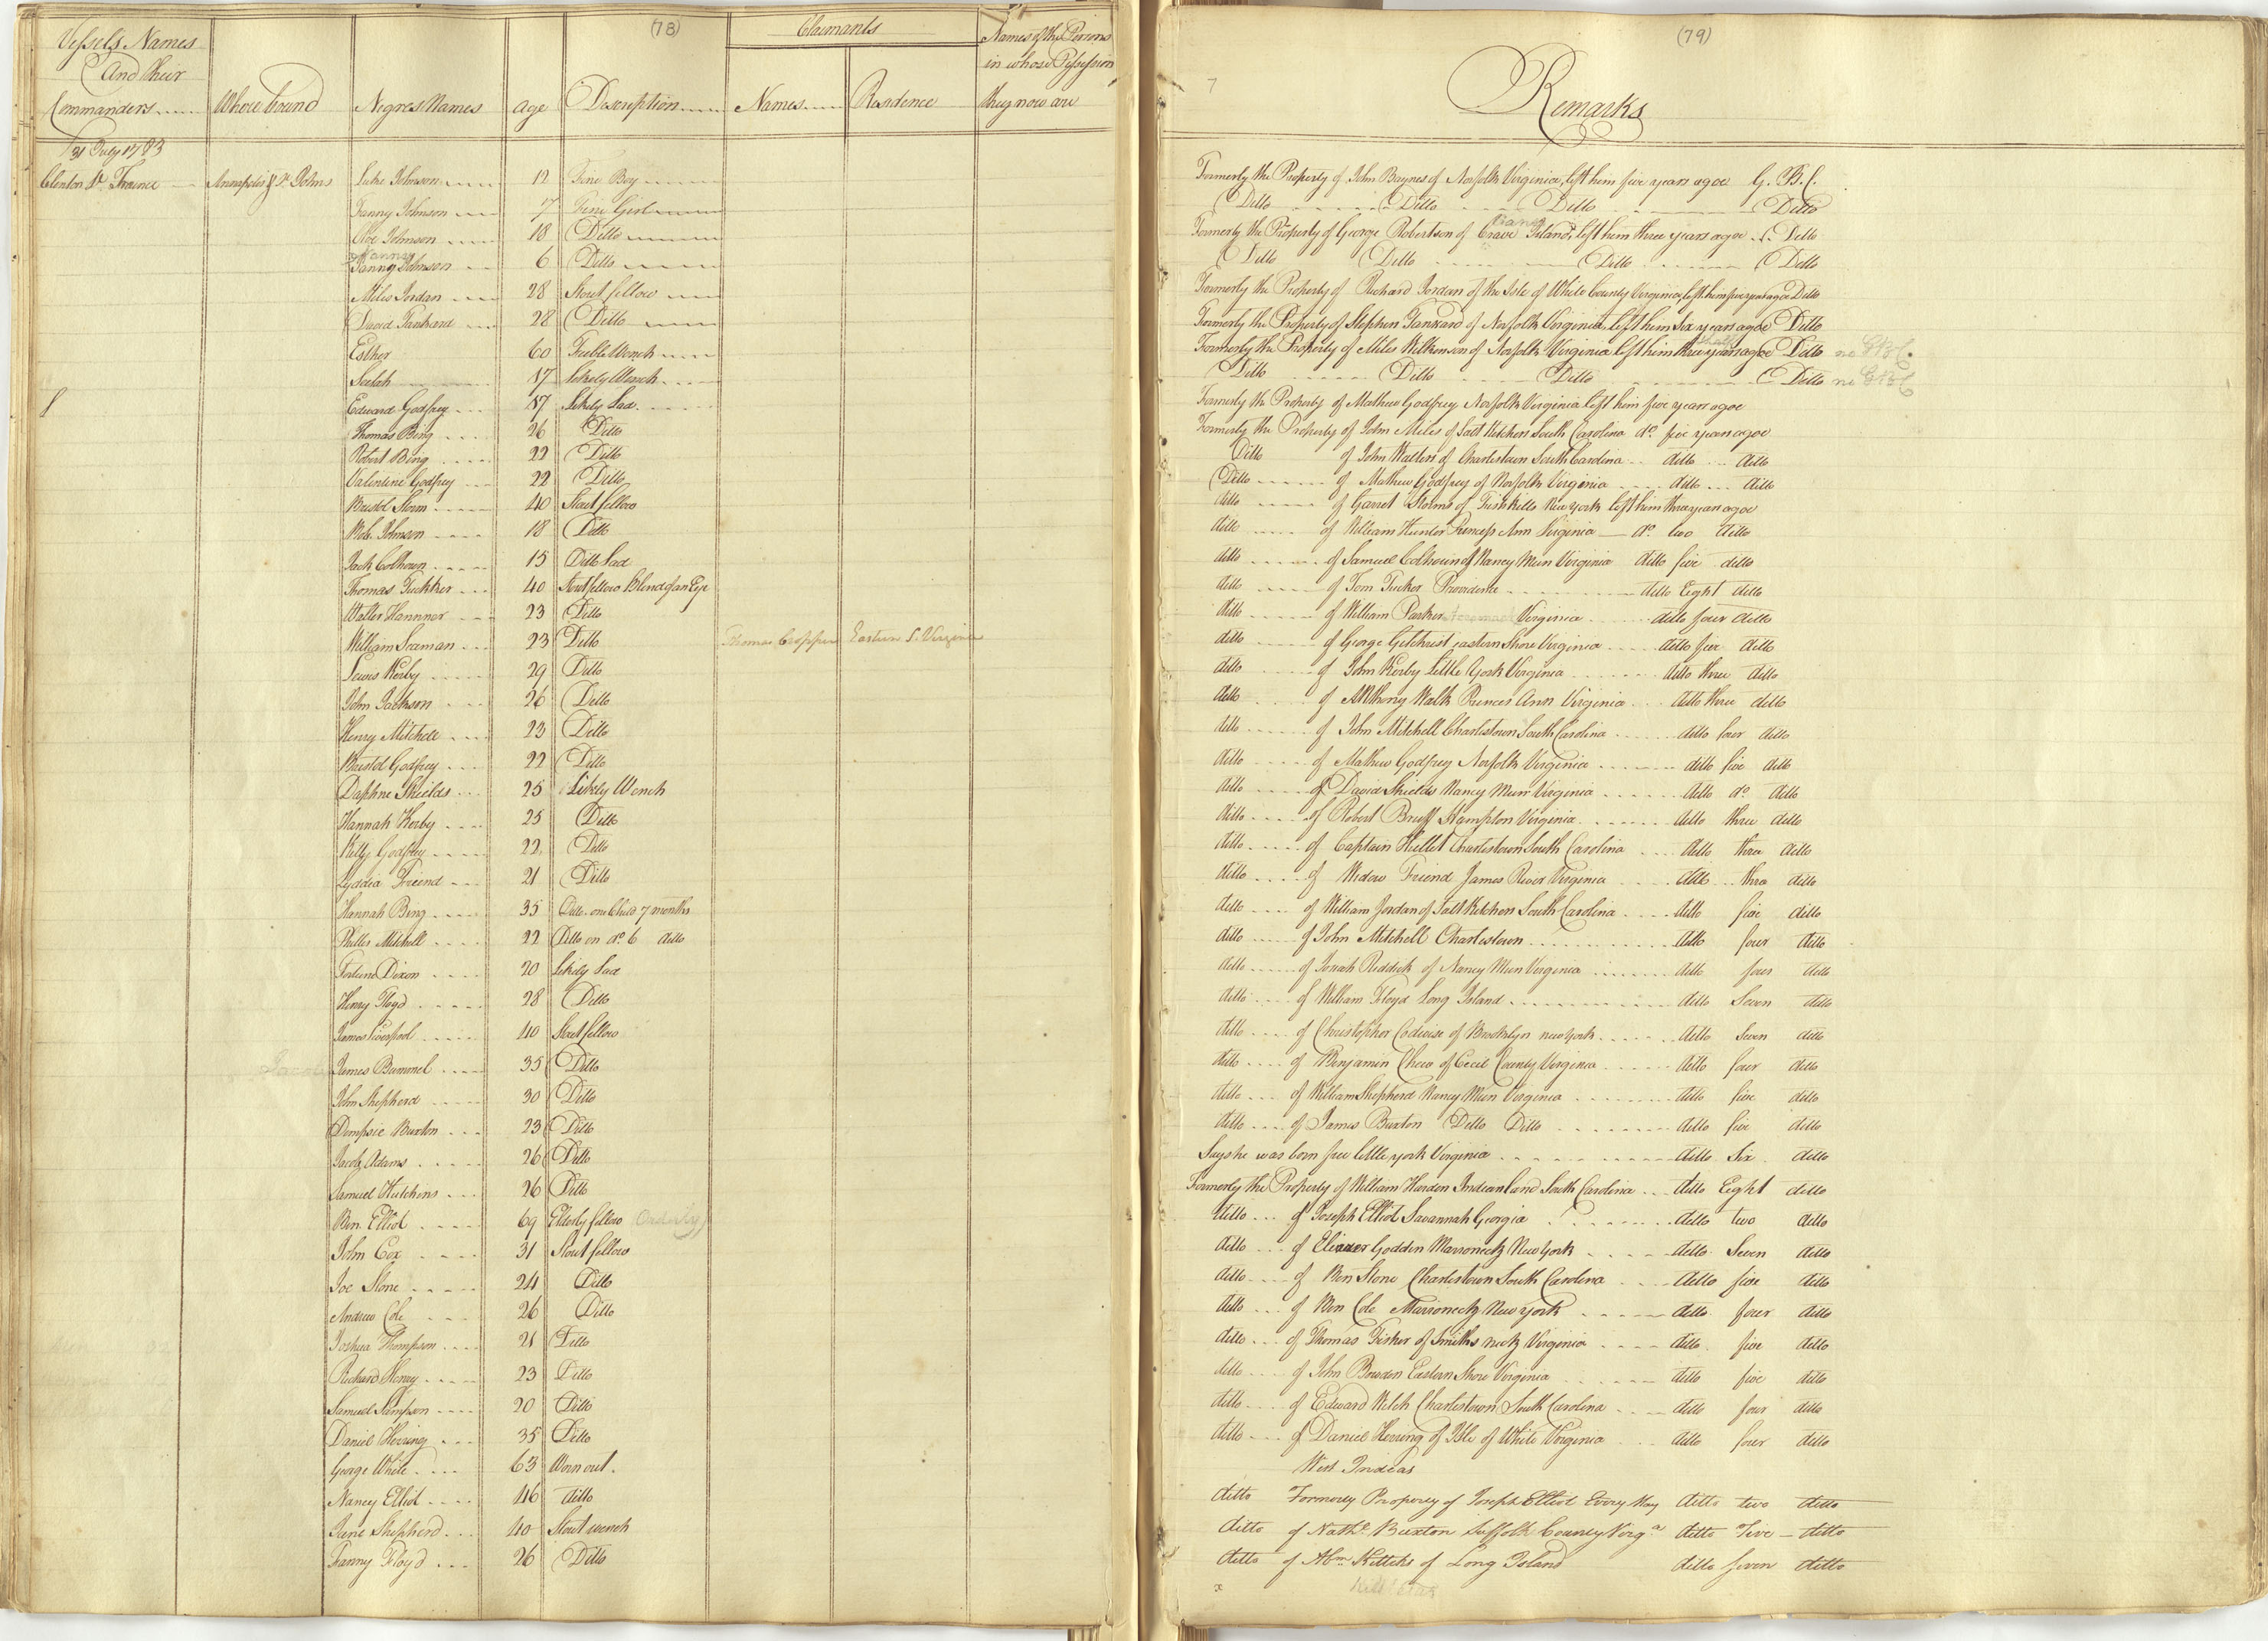 (78)
Vessels Names
And their
Commanders
Where bound
Negroes Names
Age
Description
Claimants
Names
Residence
Names of the Persons
in whose Possession
they now are
31 July 1783
Clinton Annapolis & St Johns Luke Johnson 12 Fine Boy
Fanny Johnson 7 Fine Girl
Johnson 18 Ditto
Fanny Johnson 6 Ditto
Miles Jordan 28 Stout fellow
David Tankard 28 Ditto
Esther 60 Feeble Wench
17 Likely Wench
Edward Godfrey 17 Likely Lad
Thomas Bing 26 Ditto
Robert Bing 22 Ditto
Valentine Godfrey 22 Ditto
Bristol Storm 40 Stout fellow
Johnson 18 Ditto
Jack Colhoun 15 Ditto Lad
Thomas Tuckker 40 Stout fellow Blind of an Eye
Walter Hannner 23 Ditto
William Seaman 23 Ditto Thomas Cropper Eastern S. Virginia
Lewis Kerby 29 Ditto
John Jackson 26 Ditto
Henry Mitchell 23 Ditto
Bristol Godfrey 22 Ditto
Daphne Shields 25 Likely Wench
Hannah Kerby 25 Ditto
Kitty Godfrey 22 Ditto
Lyddia Freind 21 Ditto
Hannah Bing 35 Ditto one Child 7 months
Phillis Mitchell 22 Ditto on do. 6 ditto
Fortune Dixon 20 Likely Lad
Henry Floyd 28 Ditto
James Liverpool 40 Stout fellow
Jacob
James Bummel 35 Ditto
John Shepherd 30 Ditto
Dempsie Buxton 23 Ditto
Jacob Adams 26 Ditto
Samuel Hutchins 26 Ditto
Ben Elliot 69 Elderly fellow (Orderly)
John Cox 31 Stout fellow
Joe Stone 24 Ditto
Andrew Cole 26 Ditto
Joshua Thompson 21 Ditto
Richard Henry 23 Ditto
Samuel Sampson 20 Ditto
Daniel Herring 35 Ditto
George White 63 Worn out.
Nancy Elliot 46 ditto
June Shepherd 40 Stout wench
Fanny Floyd 26 Ditto
(79)
7
Remarks
Formerly the Property of John Baynes of Norfolk Virginia, left him five years agoe G. B. C.
Ditto Ditto Ditto Ditto
Formerly the Property of George Robertson of Island, left him three years agoe Ditto
Ditto Ditto Ditto Ditto
Formerly the Property of Richard Jordan of the Isle of White County Virginia, left him five years agoe Ditto
Formerly the Property of Stephen Tankard of Norfolk Virginia, left him Six years agoe Ditto
Formerly the Property of Miles Wilkenson of Norfolk Virginia left him three years agoe Ditto no GBC.
Ditto Ditto Ditto Ditto no GBC
Formerly the Property of Mathew Godfrey Norfolk Virginia left him five years agoe
Formerly the Property of John Miles of Salt Ketchers South Carolina do. five years agoe
Ditto of John Watters of Charlestown South Carolina ditto ditto
Ditto of Mathew Godfrey of Norfolk Virginia ditto ditto
ditto of Garret Storms of Fishkills New York left him three years agoe
ditto of William Hunter Princess Ann Virginia do. two ditto
ditto of Samuel Colhoun of Nancy Mun Virginia ditto five ditto
ditto of Tom Tucker Providence ditto Eight ditto
ditto of William Parker Virginia ditto four ditto
ditto of George Gilchrist eastern Shore Virginia ditto five ditto
ditto of John Kerby Little York Virginia ditto three ditto
ditto of Anthony Walk Princes Ann Virginia ditto three ditto
ditto of John Mitchell Charlestown South Carolina ditto four ditto
ditto of Mathew Godfrey Norfolk Virginia ditto five ditto
ditto of David Shields Nancy Mun Virginia ditto do. ditto
ditto of Robert Brieff Hampton Virginia ditto three ditto
ditto of Captain Hullet Charlestown South Carolina ditto three ditto
ditto of Widow Friend James River Virginia ditto three ditto
ditto of William Jordan of Salt Ketchers South Carolina ditto five ditto
ditto of John Mitchell Charlestown ditto four ditto
ditto of Josiah Reddick of Nancy Mun Virginia ditto four ditto
ditto of William Floyd Long Island ditto Seven ditto
ditto of Christopher Codwise of Brooklyn new york ditto Seven ditto
ditto of Benjamin Chew of Cecil County Virginia ditto four ditto
ditto of William Shepherd Nancy Mun Virginia ditto five ditto
ditto of James Buxton Ditto Ditto ditto five ditto
Says he was born free little york Virginia ditto Six ditto
Formerly the Property of William Harden Indianland South Carolina ditto Eight ditto
ditto of Joseph Elliot Savannah Georgia ditto two ditto
ditto of Eliezer Godden Marroneck New York ditto Seven ditto
ditto of Ben Stone Charlestown South Carolina ditto five ditto
ditto of Ben Cole Marroneck New york ditto four ditto
ditto of Thomas Fisher of Smiths neck Virginia ditto five ditto
ditto of John Bowden Eastern Shore Virginia ditto five ditto
ditto of Edward Welch Charlestown South Carolina ditto four ditto
ditto of Daniel Herring of Isle of White Virginia ditto four ditto
West Indias
ditto Formerly Property of Joseph Elliot ditto two ditto
ditto of Nathl. Buxton Suffolk County Virga. ditto Five ditto
ditto of Abm. of Long Island ditto Seven ditto
x